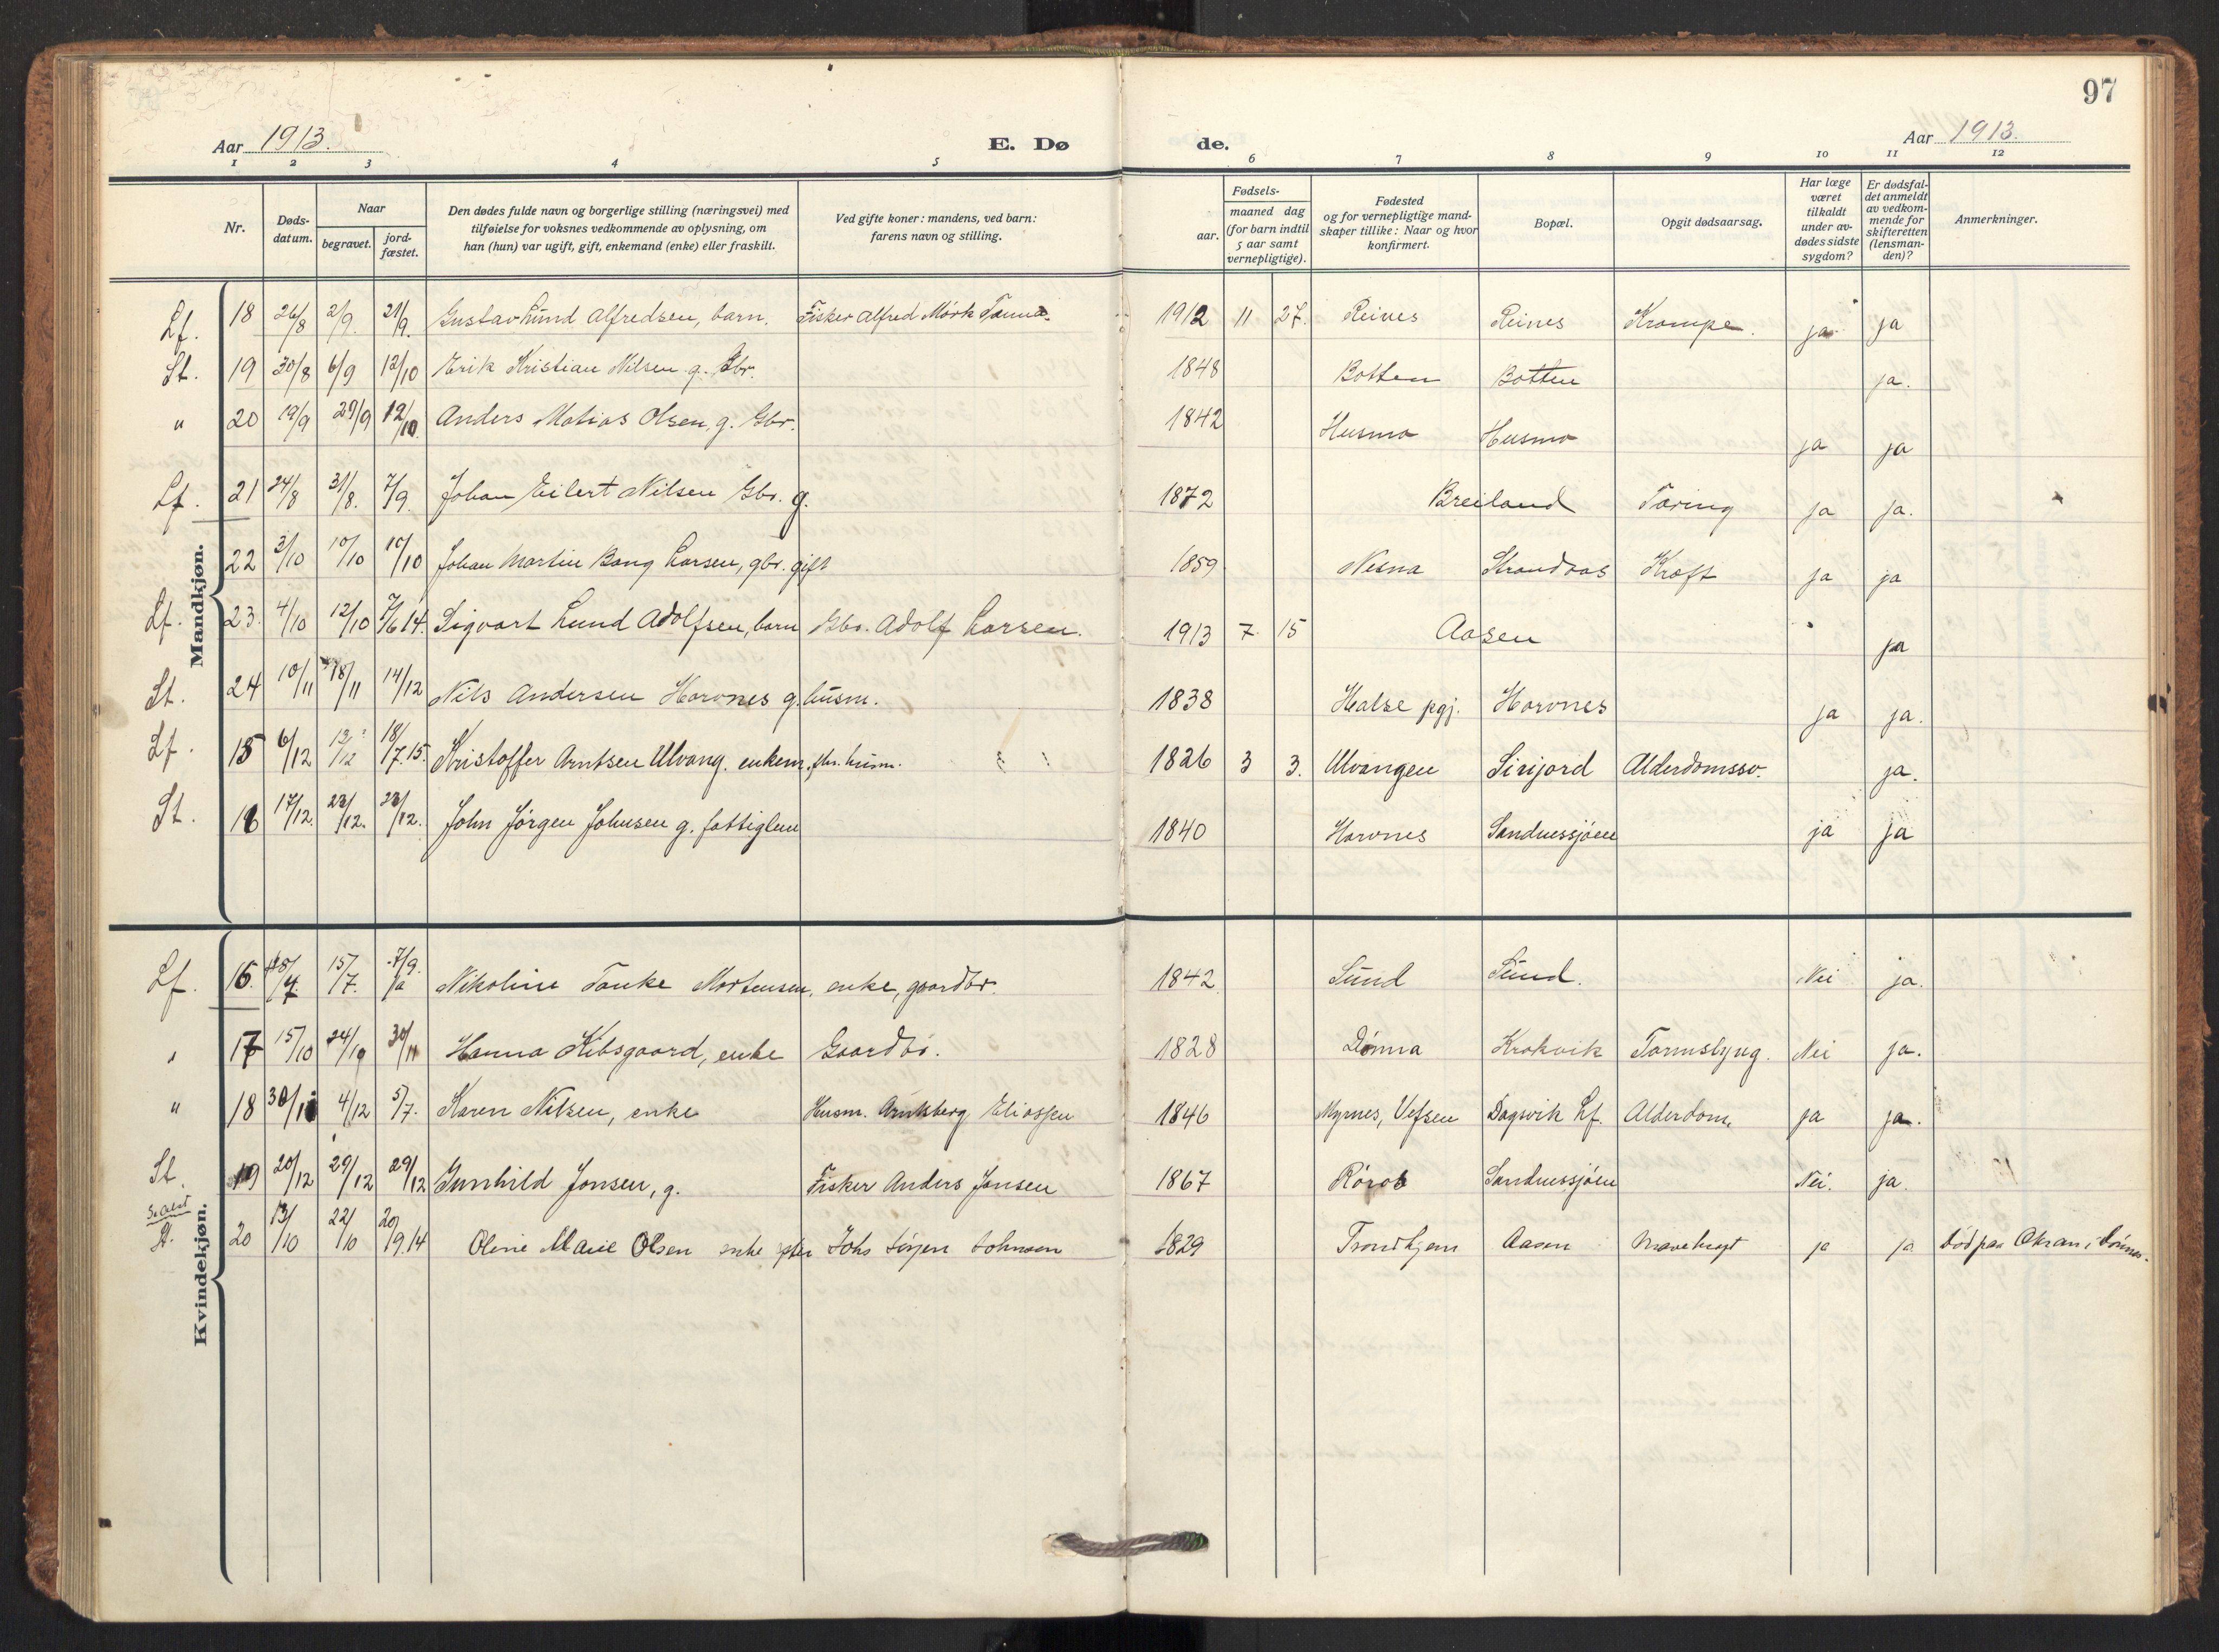 97
Aar 1913. E. Dø de. Aar 1913.
1 2 3 4 5 6 7 8 9 10 11 12
Nr.
Døds-
datum.
Naar
begravet.
jord-
fæstet.
Den dødes fulde navn og borgerlige stilling (næringsvei) med
tilføielse for voksnes vedkommende av oplysning, om
han (hun) var ugift, gift, enkemand (enke) eller fraskilt.
Ved gifte koner: mandens, ved barn:
farens navn og stilling.
Fødsels-
aar.
maaned dag
(for barn indtil
5 aar samt
vernepligtige).
Fødested
og for vernepligtige mand-
skaper tillike: Naar og hvor
konfirmert.
Bopæl.
Opgit dødsaarsag.
Har læge
været
tilkaldt
under av-
dødes sidste
sygdom?
Er dødsfal-
det anmeldt
av vedkom-
mende for
skifteretten
(lensman-
den)?
Anmerkninger.
Mandkjøn.
Lf. 18 26/8 2/9. 21/9. Gustav Lund Alfredsen, barn. Fisker Alfred Mørk 1912 11 27. Reines Reines Krampe. ja ja
St. 19 30/8 6/9 12/10 Erik Kristian Nilsen g. Gbr. 1848 Botten Botten ja.
" 20 19/9 29/9 12/10. Anders Matias Olsen, g. Gbr. 1842 Husmo Husmo ja ja
Lf. 21 24/8 31/8. 7/9. Johan Eilert Nilsen Gbr. g. 1872 Breiland Tæring ja ja.
22 3/10 10/10 10/10 Johan Martin Bang Larsen, gbr. gift 1859 Nesna Strandaas Kræft ja ja
Lf. 23. 4/10 12/10 7/6 14. Sigvart Lund Adolfsen, barn Gbr. Adolf Larsen. 1913 7. 15 Aasen ja
St. 24 10/11 18/11 14/12 Nils Andersen Horvnes g. husm. 1838 Halse pgj. Horvnes ja ja.
Lf. 15 6/12 13/12 18/7.15. Kristoffer Arntsen Ulvang. enkem. fhv. husm. 1826 3 3. Ulvangen Sirijord Alderdomssv. ja.
St. 16 17/12. 23/12. 23/12. John Jørgen Johnsen g. fattiglem 1840 Horvnes Sandnessjøen ja ja
Kvindekjøn.
Lf. 16. 15/7. 7/9. Nikoline Tanke Mortensen, enke, gaardbr. 1842. Sund Sund. Nei ja.
" 17 15/10 30/11 Hanna Kibsgaard, enke Gaardbr. 1828 Dønna Krokvik Tarmslyng. Nei ja.
" 18 30/11 4/12 5/7. Karen Nilsen, enke Husm. Arntsberg Eliassen 1846 Myrnes, Vefsen Dagsvik Lf. Alderdom, ja ja.
St. 19 20/12 29/12 29/12 Gunhild Jonsen, g. Fisker Anders Jonsen 1867 Røros Sandnessjøen Nei. ja.
St. 20 13/10 22/10 20/9.14 Oline Marie Olsen enke efter Johs Jørgen Johnsen 1829 Trondhjem Aasen Mavekræft ja ja Død paa Økran i Dønnes.